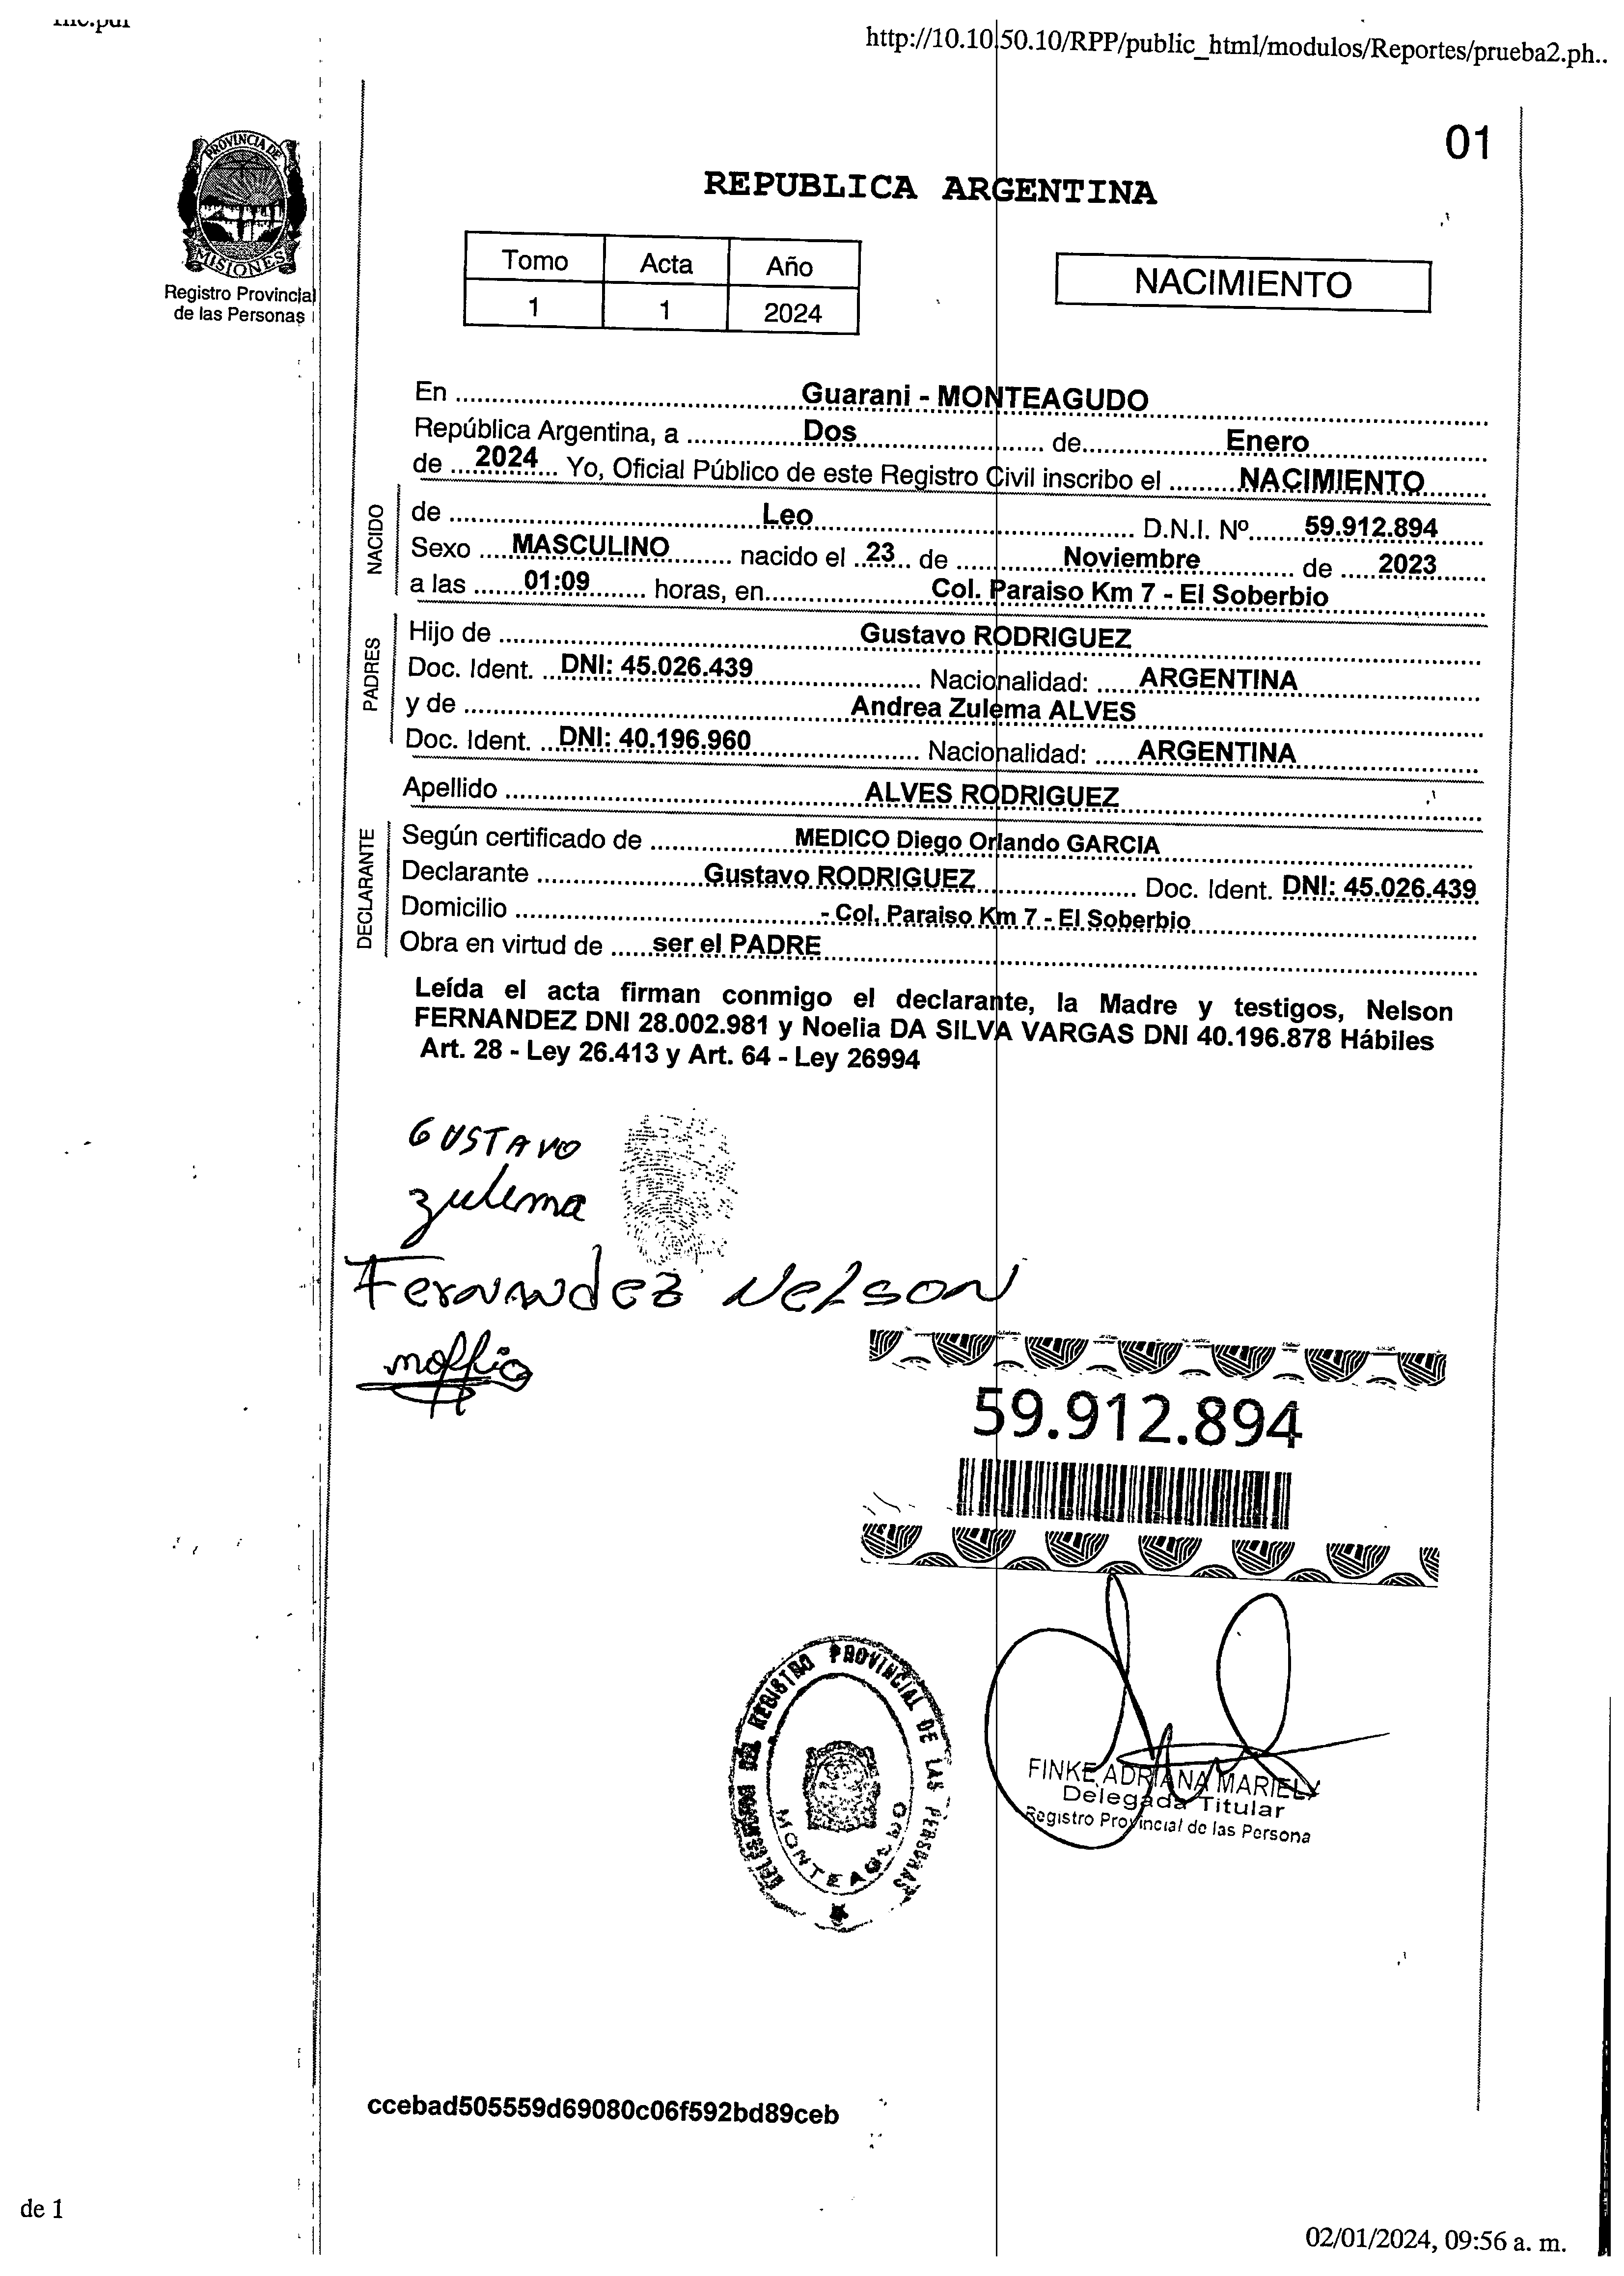 http://10.10.50.10/RPP/public_html/modulos/Reportes/prueba2.ph..
01
PROVINCIA DE
MISIONES
Registro Provincial
de las Personas
REPUBLICA ARGENTINA
Tomo Acta Año
1 1 2024
NACIMIENTO
En Guarani - MONTEAGUDO
República Argentina, a Dos de Enero
de 2024 Yo, Oficial Público de este Registro Civil inscribo el NACIMIENTO
NACIDO
de Leo D.N.I. Nº 59.912.894
Sexo MASCULINO nacido el 23 de Noviembre de 2023
a las 01:09 horas, en Col. Paraiso Km 7 - El Soberbio
PADRES
Hijo de Gustavo RODRIGUEZ
Doc. Ident. DNI: 45.026.439 Nacionalidad: ARGENTINA
y de Andrea Zulema ALVES
Doc. Ident. DNI: 40.196.960 Nacionalidad: ARGENTINA
Apellido ALVES RODRIGUEZ
DECLARANTE
Según certificado de MEDICO Diego Orlando GARCIA
Declarante Gustavo RODRIGUEZ Doc. Ident. DNI: 45.026.439
Domicilio - Col. Paraiso Km 7 - El Soberbio
Obra en virtud de ser el PADRE
Leída el acta firman conmigo el declarante, la Madre y testigos, Nelson
FERNANDEZ DNI 28.002.981 y Noelia DA SILVA VARGAS DNI 40.196.878 Hábiles
Art. 28 - Ley 26.413 y Art. 64 - Ley 26994
GUSTAVO
Zulema
Fernandez Nelson
59.912.894
REGISTRO PROVINCIAL DE LAS PERSONAS
MONTEAGUDO
FINKE ADRIANA MARIELA
Delegada Titular
Registro Provincial de las Persona
ccebad505559d69080c06f592bd89ceb
de 1
02/01/2024, 09:56 a. m.